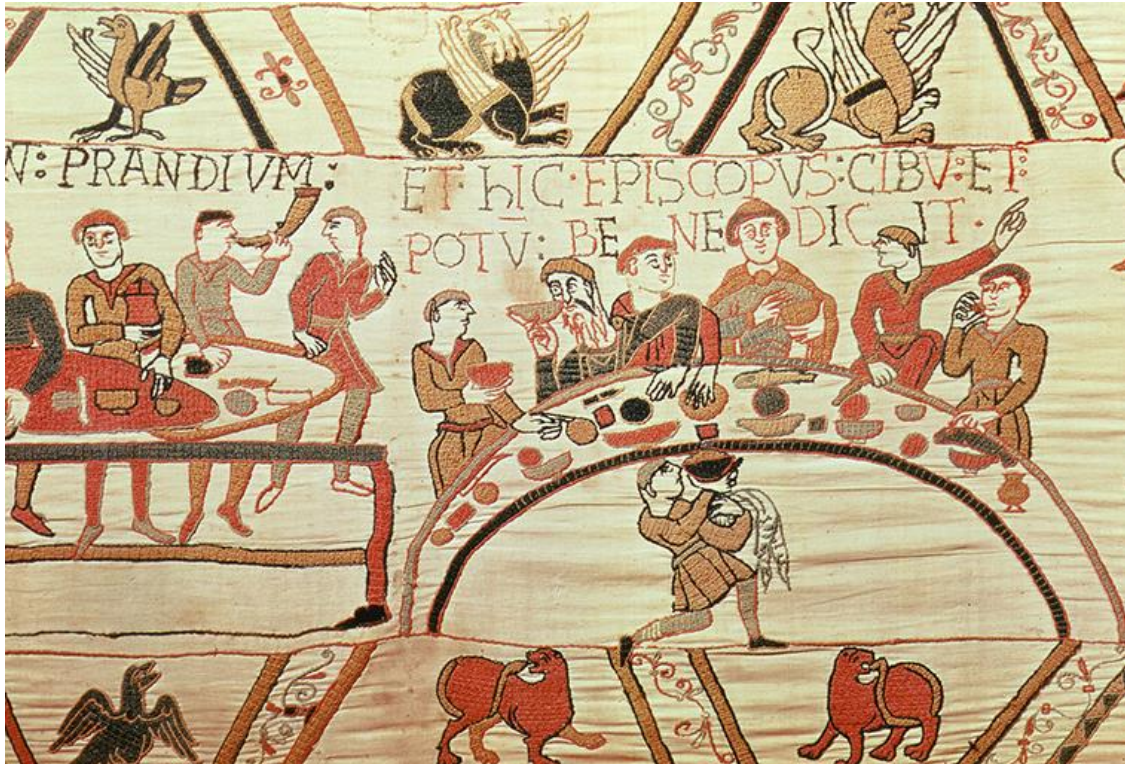 N : PRANDIVM :
ET · hIC · EPISCOPVS : CIBV : ET :
POTV̄ : BE NE DIC IT ·